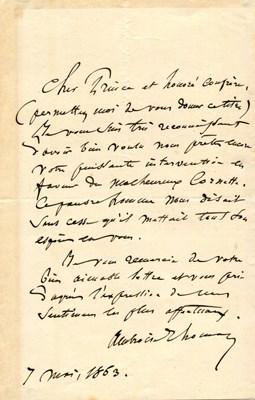 Cher Prince et honoré confrère,
(permettez moi de vous donner ce titre)
Je vous suis très reconnaissant
d'avoir bien voulu nous prêter
votre puissante intervention en
faveur du malheureux Cornette.
Ce pauvre homme nous disait
sans cesse qu'il mettait tout son
espoir en vous.
Je vous remercie de votre
bien aimable lettre et vous prie
d'agréer l'expression de mes
sentiments les plus affectueux.
Ambroise Thomas
7 mai, 1863.